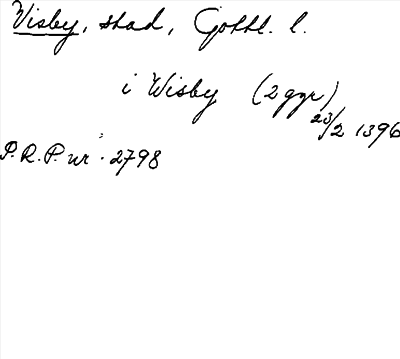 Visby, stad, Gottl. l.
i Wisby (2 ggr)
23/2 1396
P.R.P. nr 2798